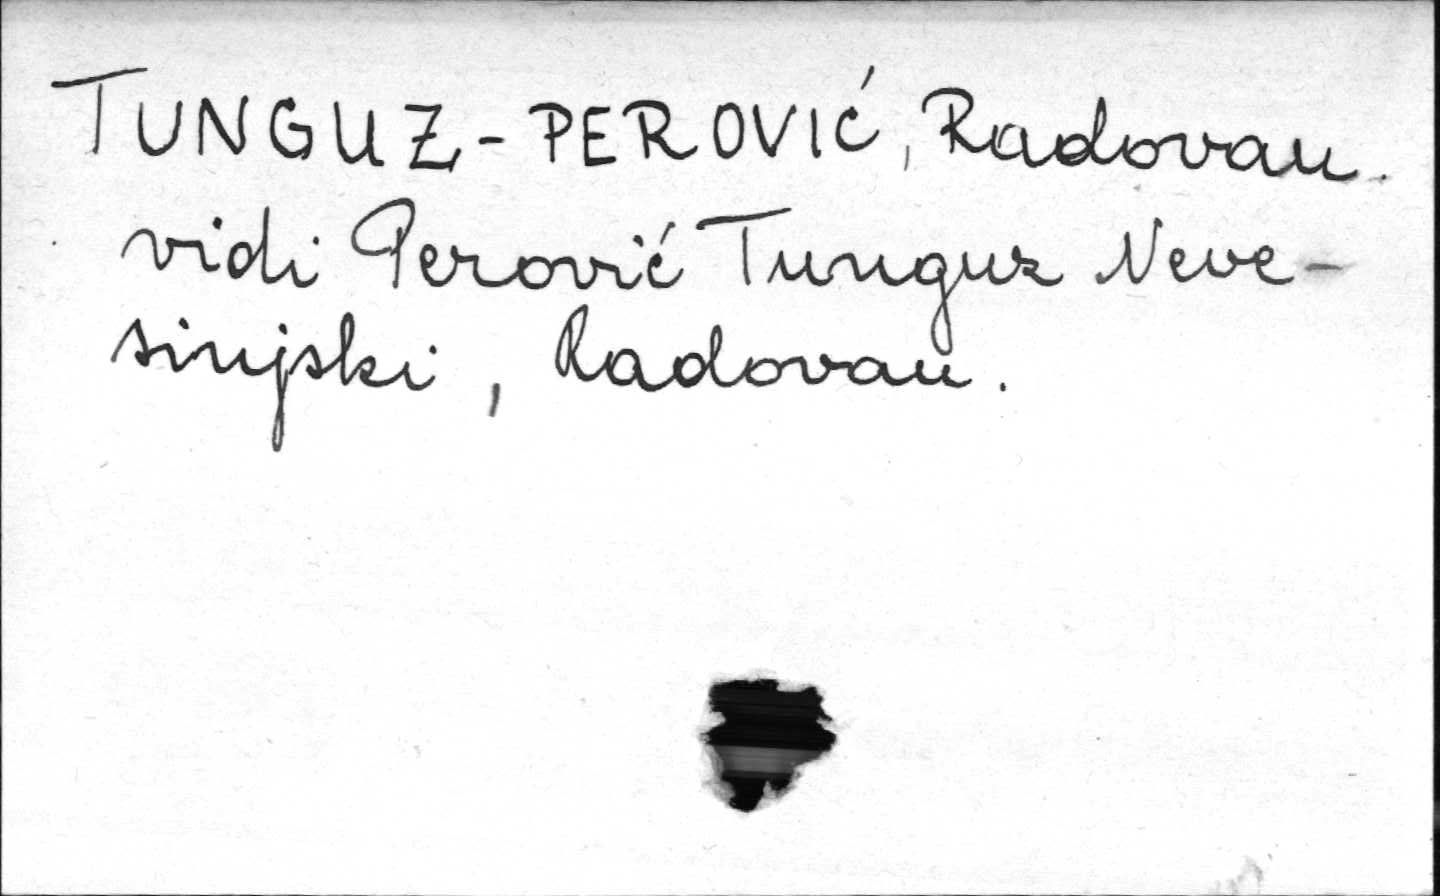 TUNGUZ-PEROVIĆ, Radovan.
vidi Perović Tunguz Neve-
sinjski, Radovan.